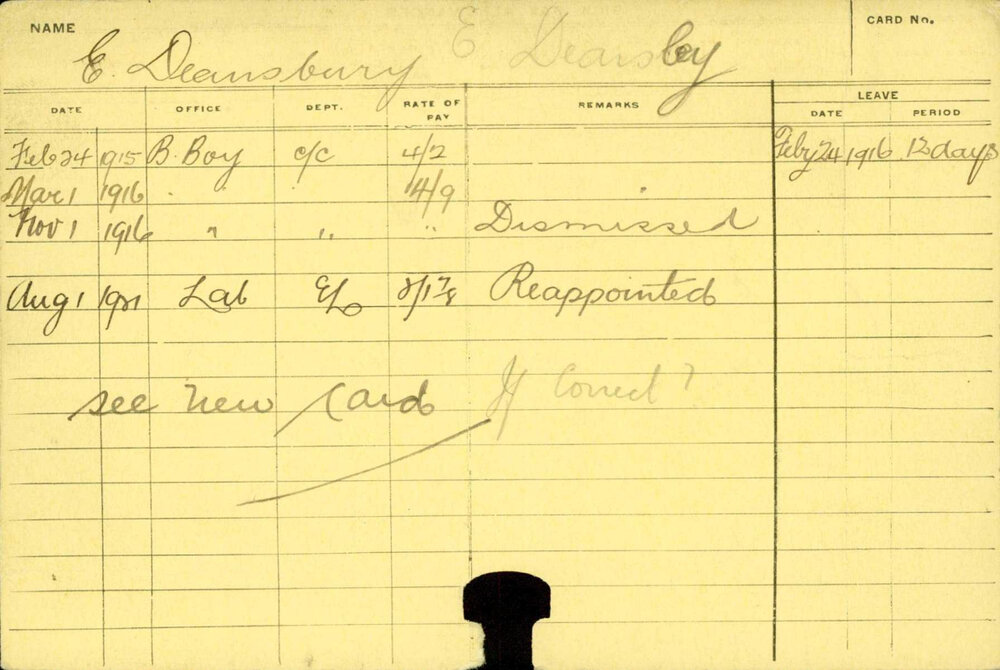 NAME
CARD No.
E. Deansbury E Deansbey
DATE OFFICE DEPT. RATE OF PAY REMARKS LEAVE DATE PERIOD
Feb 24 1915 B. Boy c/c 4/2 Feby 24 1916 12 days
Mar 1 1916 " " 4/9
Nov 1 1916 " " " Dismissed
Aug 1 1921 Lab Reappointed
see new card If Correct?